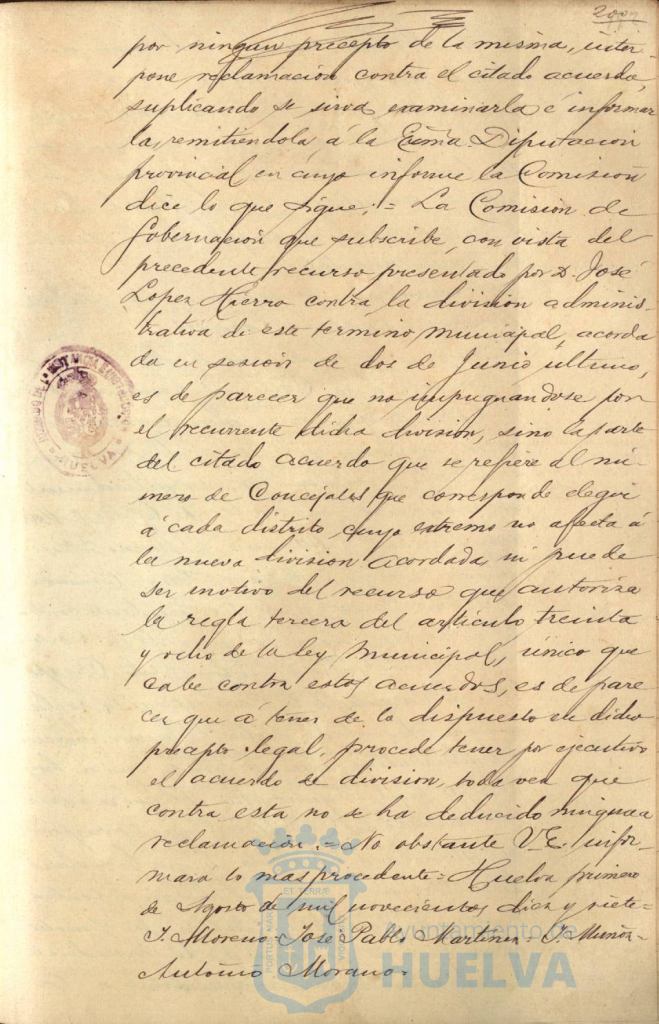 por ningun precepto de la misma, inter
pone reclamación contra el citado acuerdo,
suplicando se sirva examinarla é informar
la, remitiéndola á la Exma Diputacion
provincial, en cuyo informe la Comisión
dice lo que sigue: = La Comisión de
Gobernación que subscribe, con vista del
precedente recurso presentado por D. José
Lopez Hierro contra la division adminis-
trativa de este termino municipal, acorda
da en sesión de dos de Junio ultimo,
es de parecer que no impugnandose por
el recurrente dicha division, sino la parte
del citado acuerdo que se refiere al nú-
mero de Concejales que corresponde elegir
á cada distrito, cuyo extremo no afecta á
la nueva division acordada, ni puede
ser motivo del recurso que autoriza
la regla tercera del artículo treinta
y ocho de la ley Municipal, único que
cabe contra estos acuerdos, es de pare
cer que á tenor de lo dispuesto en dicho
precepto legal, procede tener por ejecutivo
el acuerdo de division, toda vez que
contra esta no se ha deducido ninguna
reclamación. = No obstante V.E. infor-
mará lo mas procedente = Huelva primero
de Agosto de mil novecientos diez y siete =
J. Moreno = José Pablo Martinez = J. Muñoz =
Antonio Morano =
HUELVA
Ayuntamiento de
HUELVA